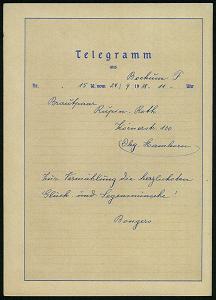 Telegramm
aus
Bochum F
Nr. 15 W. vom 24/9 1938. 11 - Uhr
Brautpaar
Rüpin - Roth
Körnerstr. 130
Dbg. Hamborn
Zur Vermählung die herzlichsten
Glück- und Segenswünsche!
Bongers